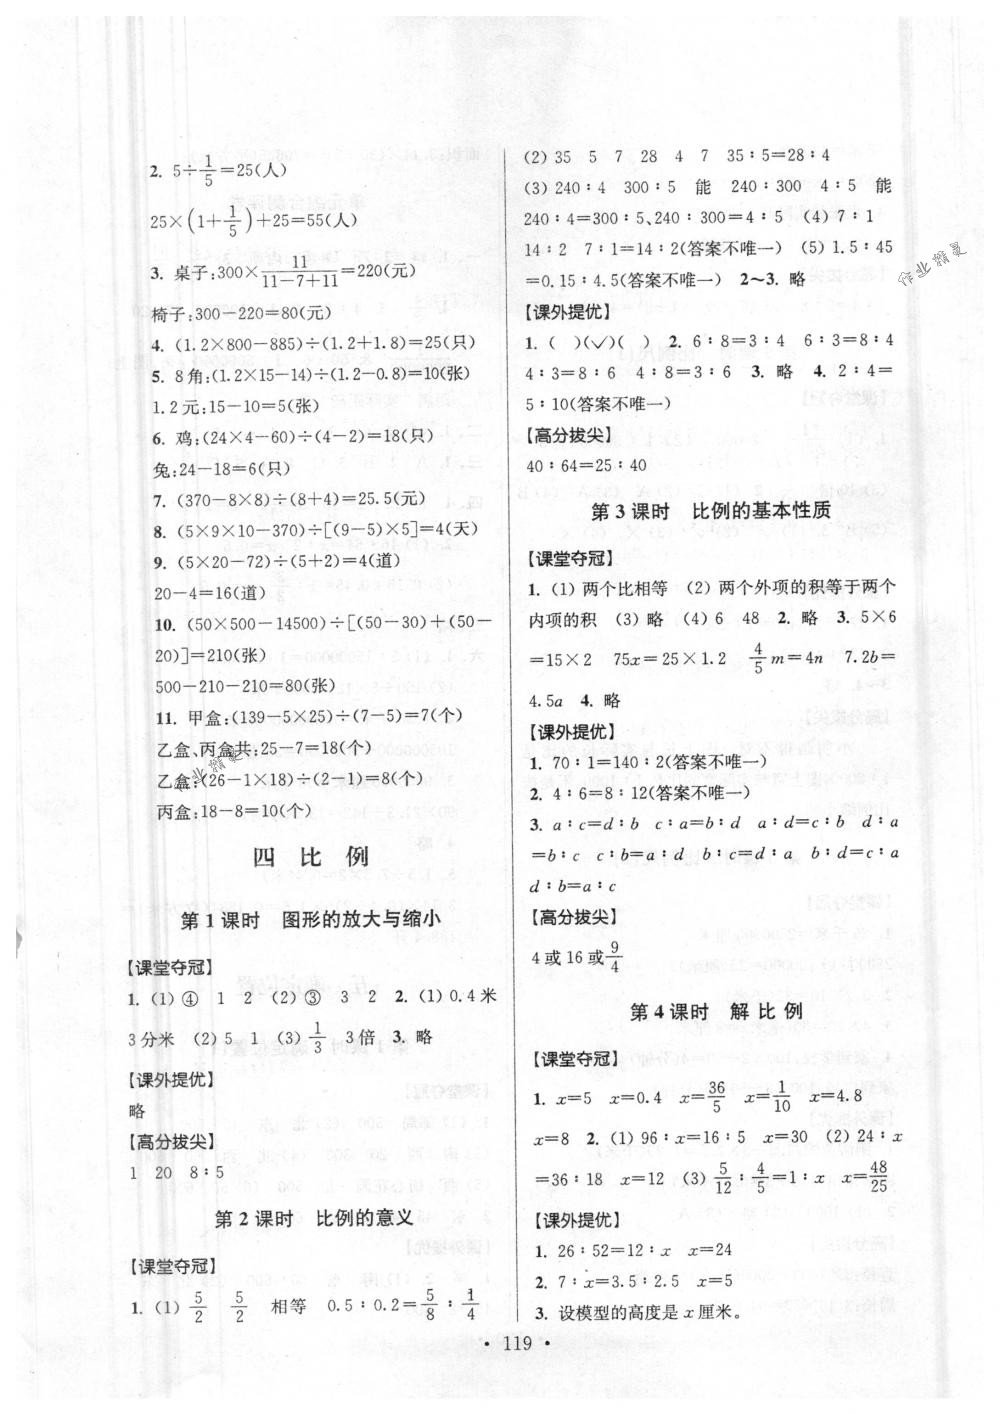 2. 5÷1/5=25(人)
25×(1+1/5)+25=55(人)
3. 桌子:300×11/(11-7+11)=220(元)
椅子:300-220=80(元)
4. (1.2×800-885)÷(1.2+1.8)=25(只)
5. 8角:(1.2×15-14)÷(1.2-0.8)=10(张)
1.2元:15-10=5(张)
6. 鸡:(24×4-60)÷(4-2)=18(只)
兔:24-18=6(只)
7. (370-8×8)÷(8+4)=25.5(元)
8. (5×9×10-370)÷[(9-5)×5]=4(天)
9. (5×20-72)÷(5+2)=4(道)
20-4=16(道)
10. (50×500-14500)÷[(50-30)+(50-
20)]=210(张)
500-210-210=80(张)
11. 甲盒:(139-5×25)÷(7-5)=7(个)
乙盒、丙盒共:25-7=18(个)
乙盒:(26-1×18)÷(2-1)=8(个)
丙盒:18-8=10(个)
四 比 例
第1课时 图形的放大与缩小
【课堂夺冠】
1. (1)④ 1 2 (2)③ 3 2 2. (1)0.4米
3分米 (2)5 1 (3)1/3 3倍 3. 略
【课外提优】
略
【高分拔尖】
1 20 8∶5
第2课时 比例的意义
【课堂夺冠】
1. (1)5/2 5/2 相等 0.5∶0.2=5/8∶1/4
(2)35 5 7 28 4 7 35∶5=28∶4
(3)240∶4 300∶5 能 240∶300 4∶5 能
240∶4=300∶5、240∶300=4∶5 (4)7∶1
14∶2 7∶1=14∶2(答案不唯一) (5)1.5∶45
=0.15∶4.5(答案不唯一) 2~3. 略
【课外提优】
1. ( )(✓)( ) 2. 6∶8=3∶4 6∶3=8∶4
4∶3=8∶6 4∶8=3∶6 3. 略 4. 2∶4=
5∶10(答案不唯一)
【高分拔尖】
40∶64=25∶40
第3课时 比例的基本性质
【课堂夺冠】
1. (1)两个比相等 (2)两个外项的积等于两个
内项的积 (3)略 (4)6 48 2. 略 3. 5×6
=15×2 75x=25×1.2 4/5m=4n 7.2b=
4.5a 4. 略
【课外提优】
1. 70∶1=140∶2(答案不唯一)
2. 4∶6=8∶12(答案不唯一)
3. a∶c=d∶b c∶a=b∶d a∶d=c∶b d∶a
=b∶c c∶b=a∶d b∶c=d∶a b∶d=c∶a
d∶b=a∶c
【高分拔尖】
4或16或9/4
第4课时 解 比 例
【课堂夺冠】
1. x=5 x=0.4 x=36/5 x=1/10 x=4.8
x=8 2. (1)96∶x=16∶5 x=30 (2)24∶x
=36∶18 x=12 (3)5/12∶4/5=1∶x x=48/25
【课外提优】
1. 26∶52=12∶x x=24
2. 7∶x=3.5∶2.5 x=5
3. 设模型的高度是x厘米。
• 119 •
作业精灵
作业精灵